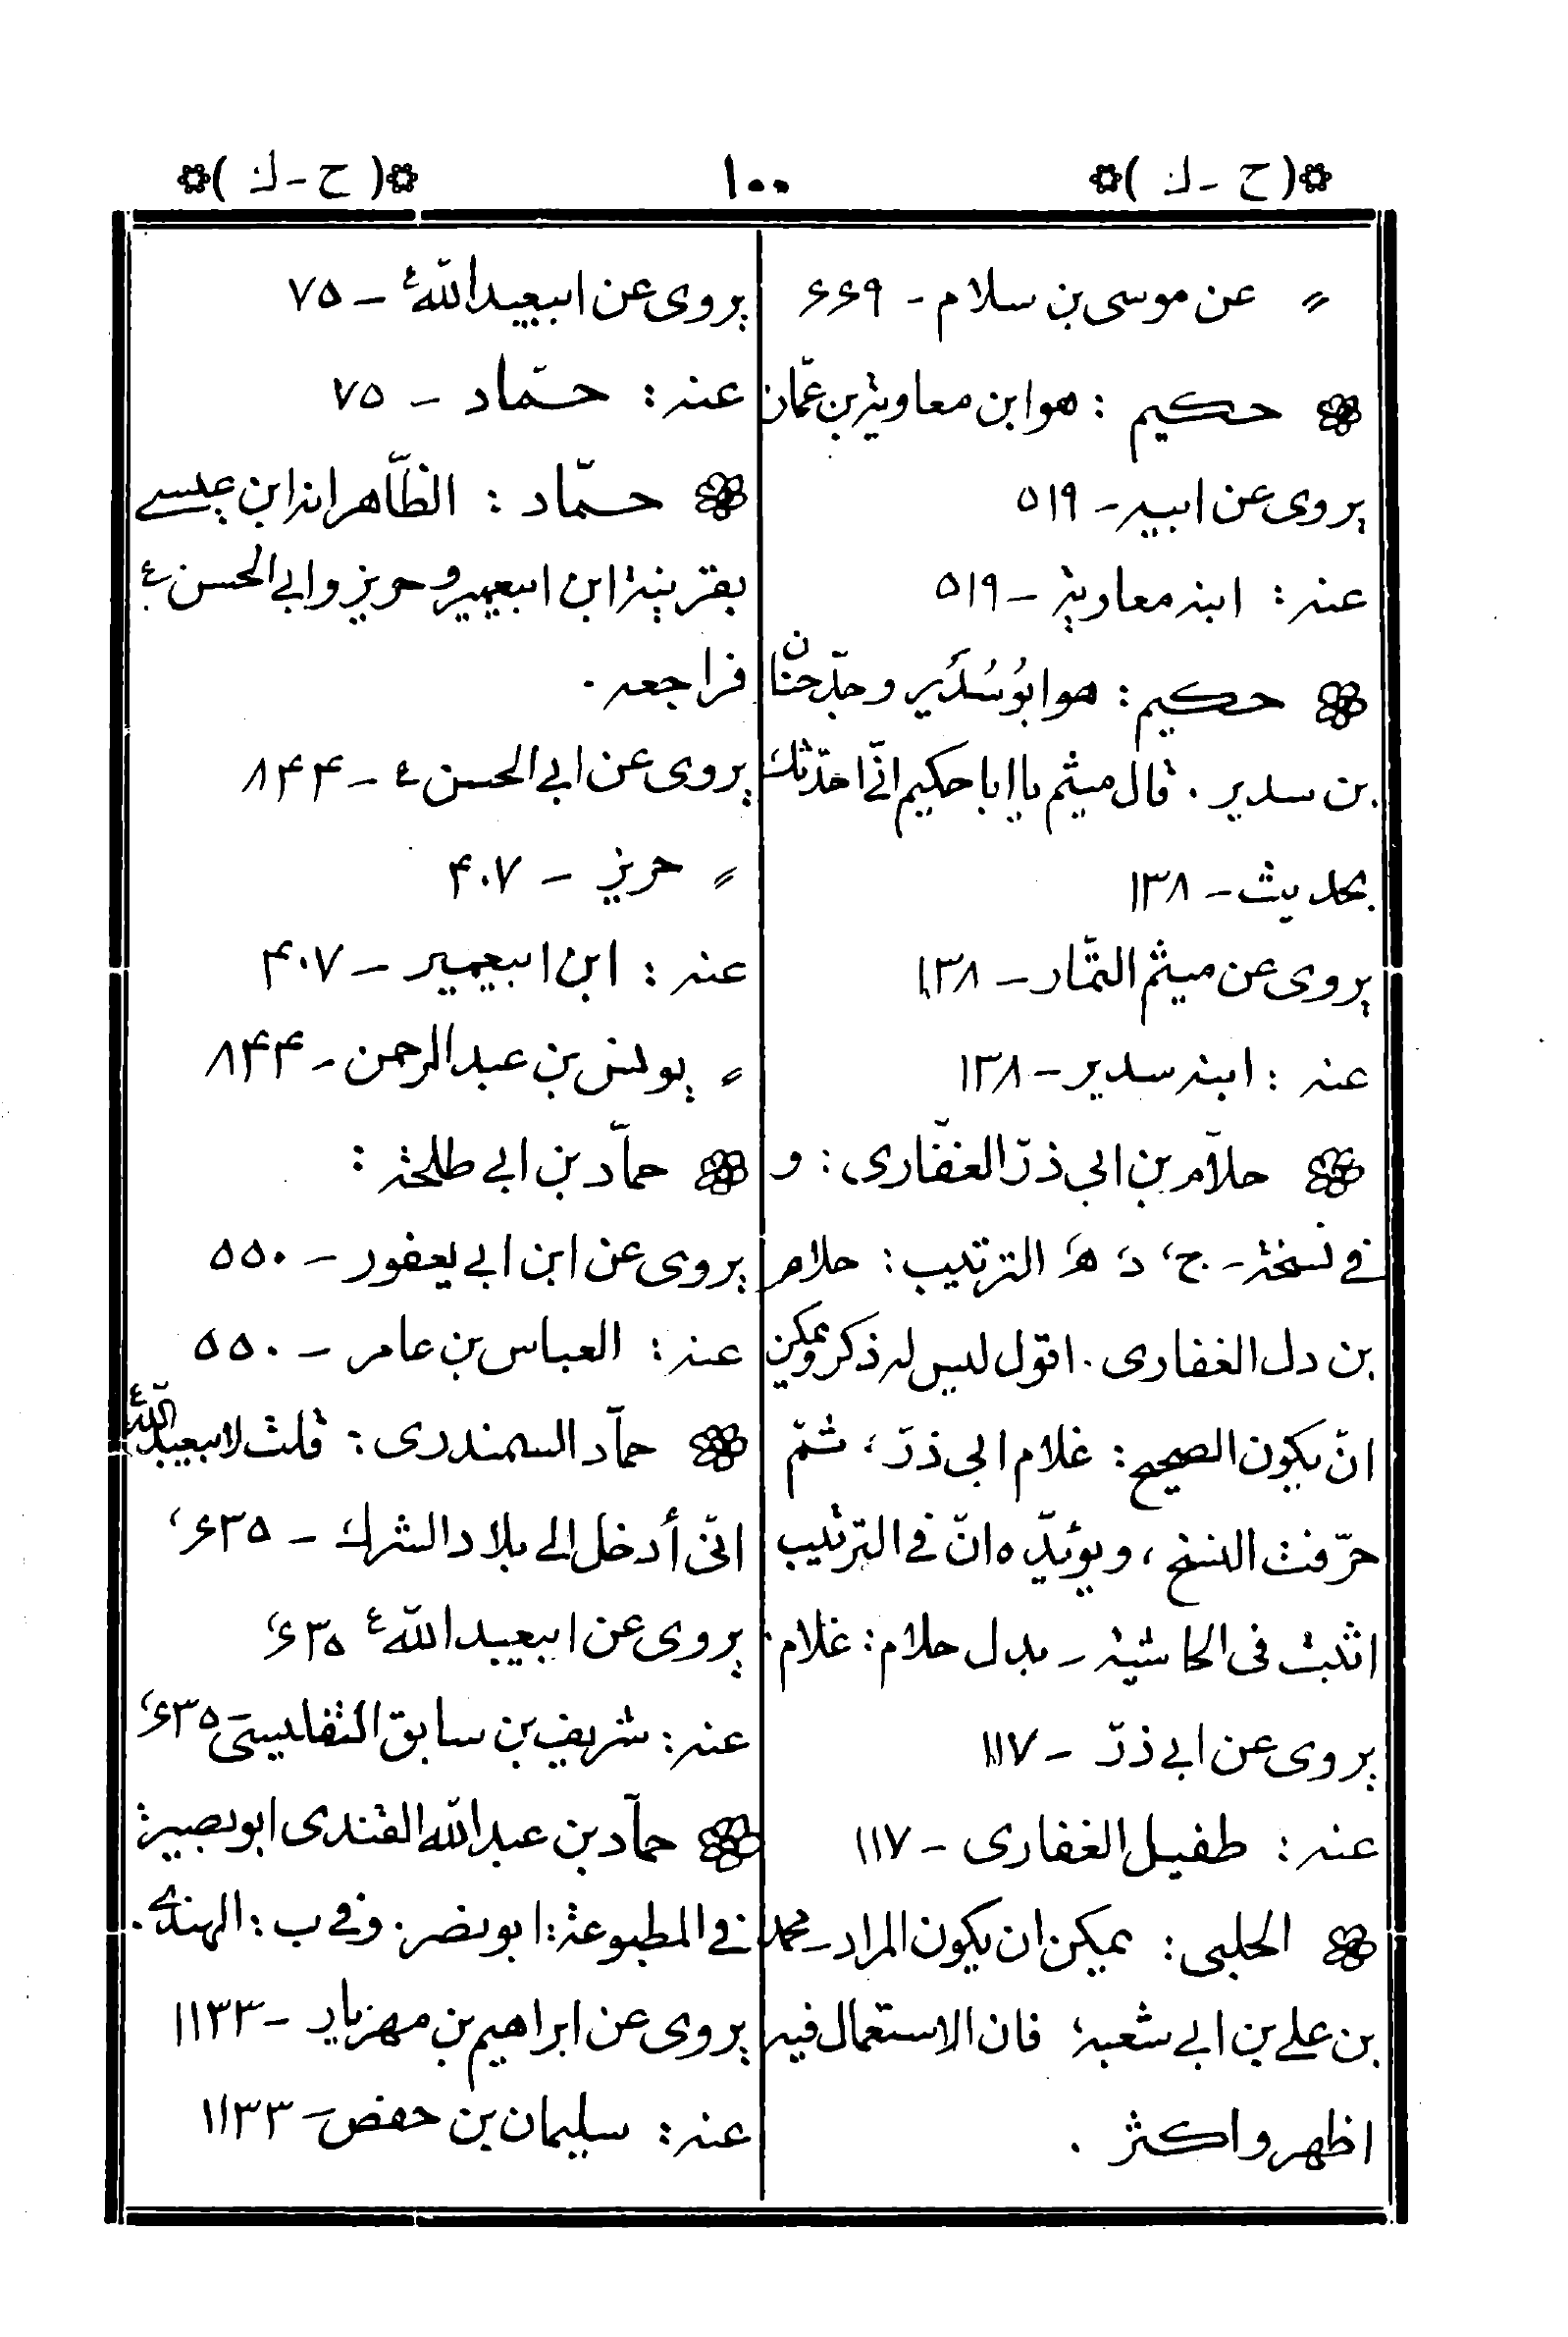 (ح - ك)
١٠٠
(ح - ك)
〃 عن موسى بن سلام - ۶۶۹
حكيم : هو ابن معاوية بن عمّان
يروى عن ابيه - ۵١۹
عنه : ابنه معاوية - ۵١۹
حكيم : هو ابوُ سُدَير و جدّ حنان
بن سدير . قال ميثم يا ابا حكيم انّى احدّثك
بحديث - ١٣٨
يروى عن ميثم التمّار - ١٣٨
عنه : ابنه سدير - ١٣٨
حلاّم بن ابى ذرّ الغفّارى : و
في نسخة - ج، د، ه، الترتيب : حلام
بن دل الغفارى . اقول ليس له ذكر و يمكن
انّ يكون الصحيح : غلام ابى ذرّ ، ثمّ
حرّفت النسخ ، و يؤيّده انّ فى الترتيب
اثبت فى الحاشية - بدل حلام : غلام .
يروى عن ابي ذرّ - ١١٧
عنه : طفيل الغفارى - ١١٧
الحلبى : يمكن ان يكون المراد - محمد
بن علي بن ابي شعبة فان الاستعمال فيه
اظهر و اكثر .
يروى عن ابيعبد اللّه ع - ٧۵
عنه : حمّاد - ٧۵
حمّاد : الظّاهر انه ابن عيسے
بقرينة ابن ابيعمير و حريز و ابي الحسن ع
فراجعه .
يروى عن ابي الحسن ع - ٨۴۴
〃 حريز - ۴٠٧
عنه : ابن ابيعمير - ۴٠٧
〃 يونس بن عبد الرحمن - ٨۴۴
حمآد بن ابي طلحة :
يروى عن ابن ابي يعفور - ۵۵٠
عنه : العباس بن عامر - ۵۵٠
حمآد السمندرى : قلت لابيعبد اللّه ع
انّى أدخل الى بلاد الشرك - ۶٣۵،
يروى عن ابيعبد اللّه ع ۶٣۵،
عنه : شريف بن سابق التفليسىّ ۶٣۵،
حمآد بن عبد اللّه القندى ابو بصيرة
في المطبوعة : ابو نصر . و في ب : الهندے .
يروى عن ابراهيم بن مهزيار - ١١٣٣
عنه : سليمان بن حفص - ١١٣٣